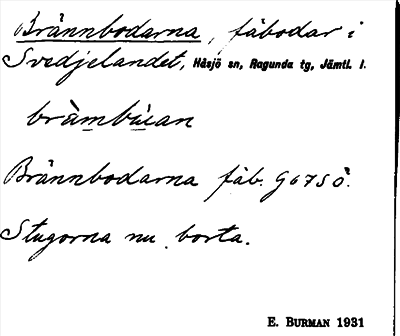 Brännbodarna, fäbodar i
Svedjelandet, Håsjö sn, Ragunda tg, Jämtl. l.
bràmbu̇́an
Brännbodarna fäb. G67SÖ.
Stugorna nu borta.
E. BURMAN 1931